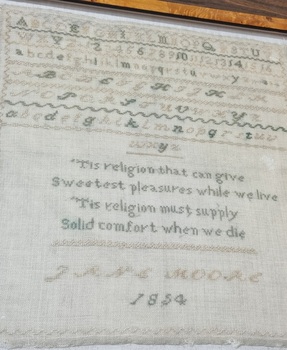 A B C D E F G H I J K L M N O P Q R S T U
V W X Y Z 1 2 3 4 5 6 7 8 9 10 11 12 13 14 15 16
a b c d e f g h i j k l m n o p q r s t u v w x y z
a b c d e f g h i j k l m n o p q r s t u v
w x y z
'Tis religion that can give
Sweetest pleasures while we live
'Tis religion must supply
Solid comfort when we die
JANE MOORE
1854